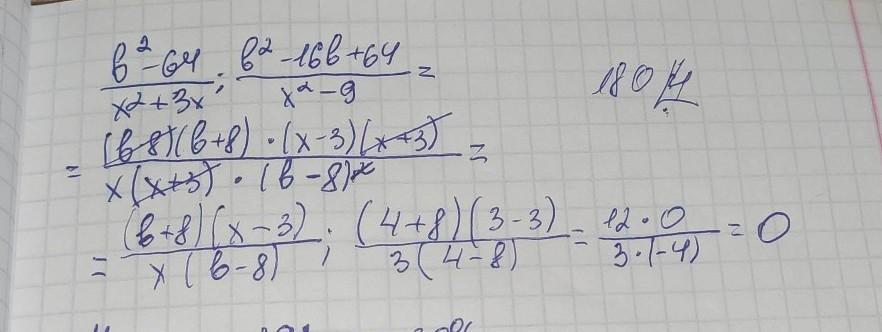 (b²-64)/(x²+3x) : (b²-16b+64)/(x²-9) =
180
= ((b-8)(b+8)·(x-3)(x+3))/(x(x+3)·(b-8)²) =
= ((b+8)(x-3))/(x(b-8)) ; ((4+8)(3-3))/(3(4-8)) = (12·0)/(3·(-4)) = 0